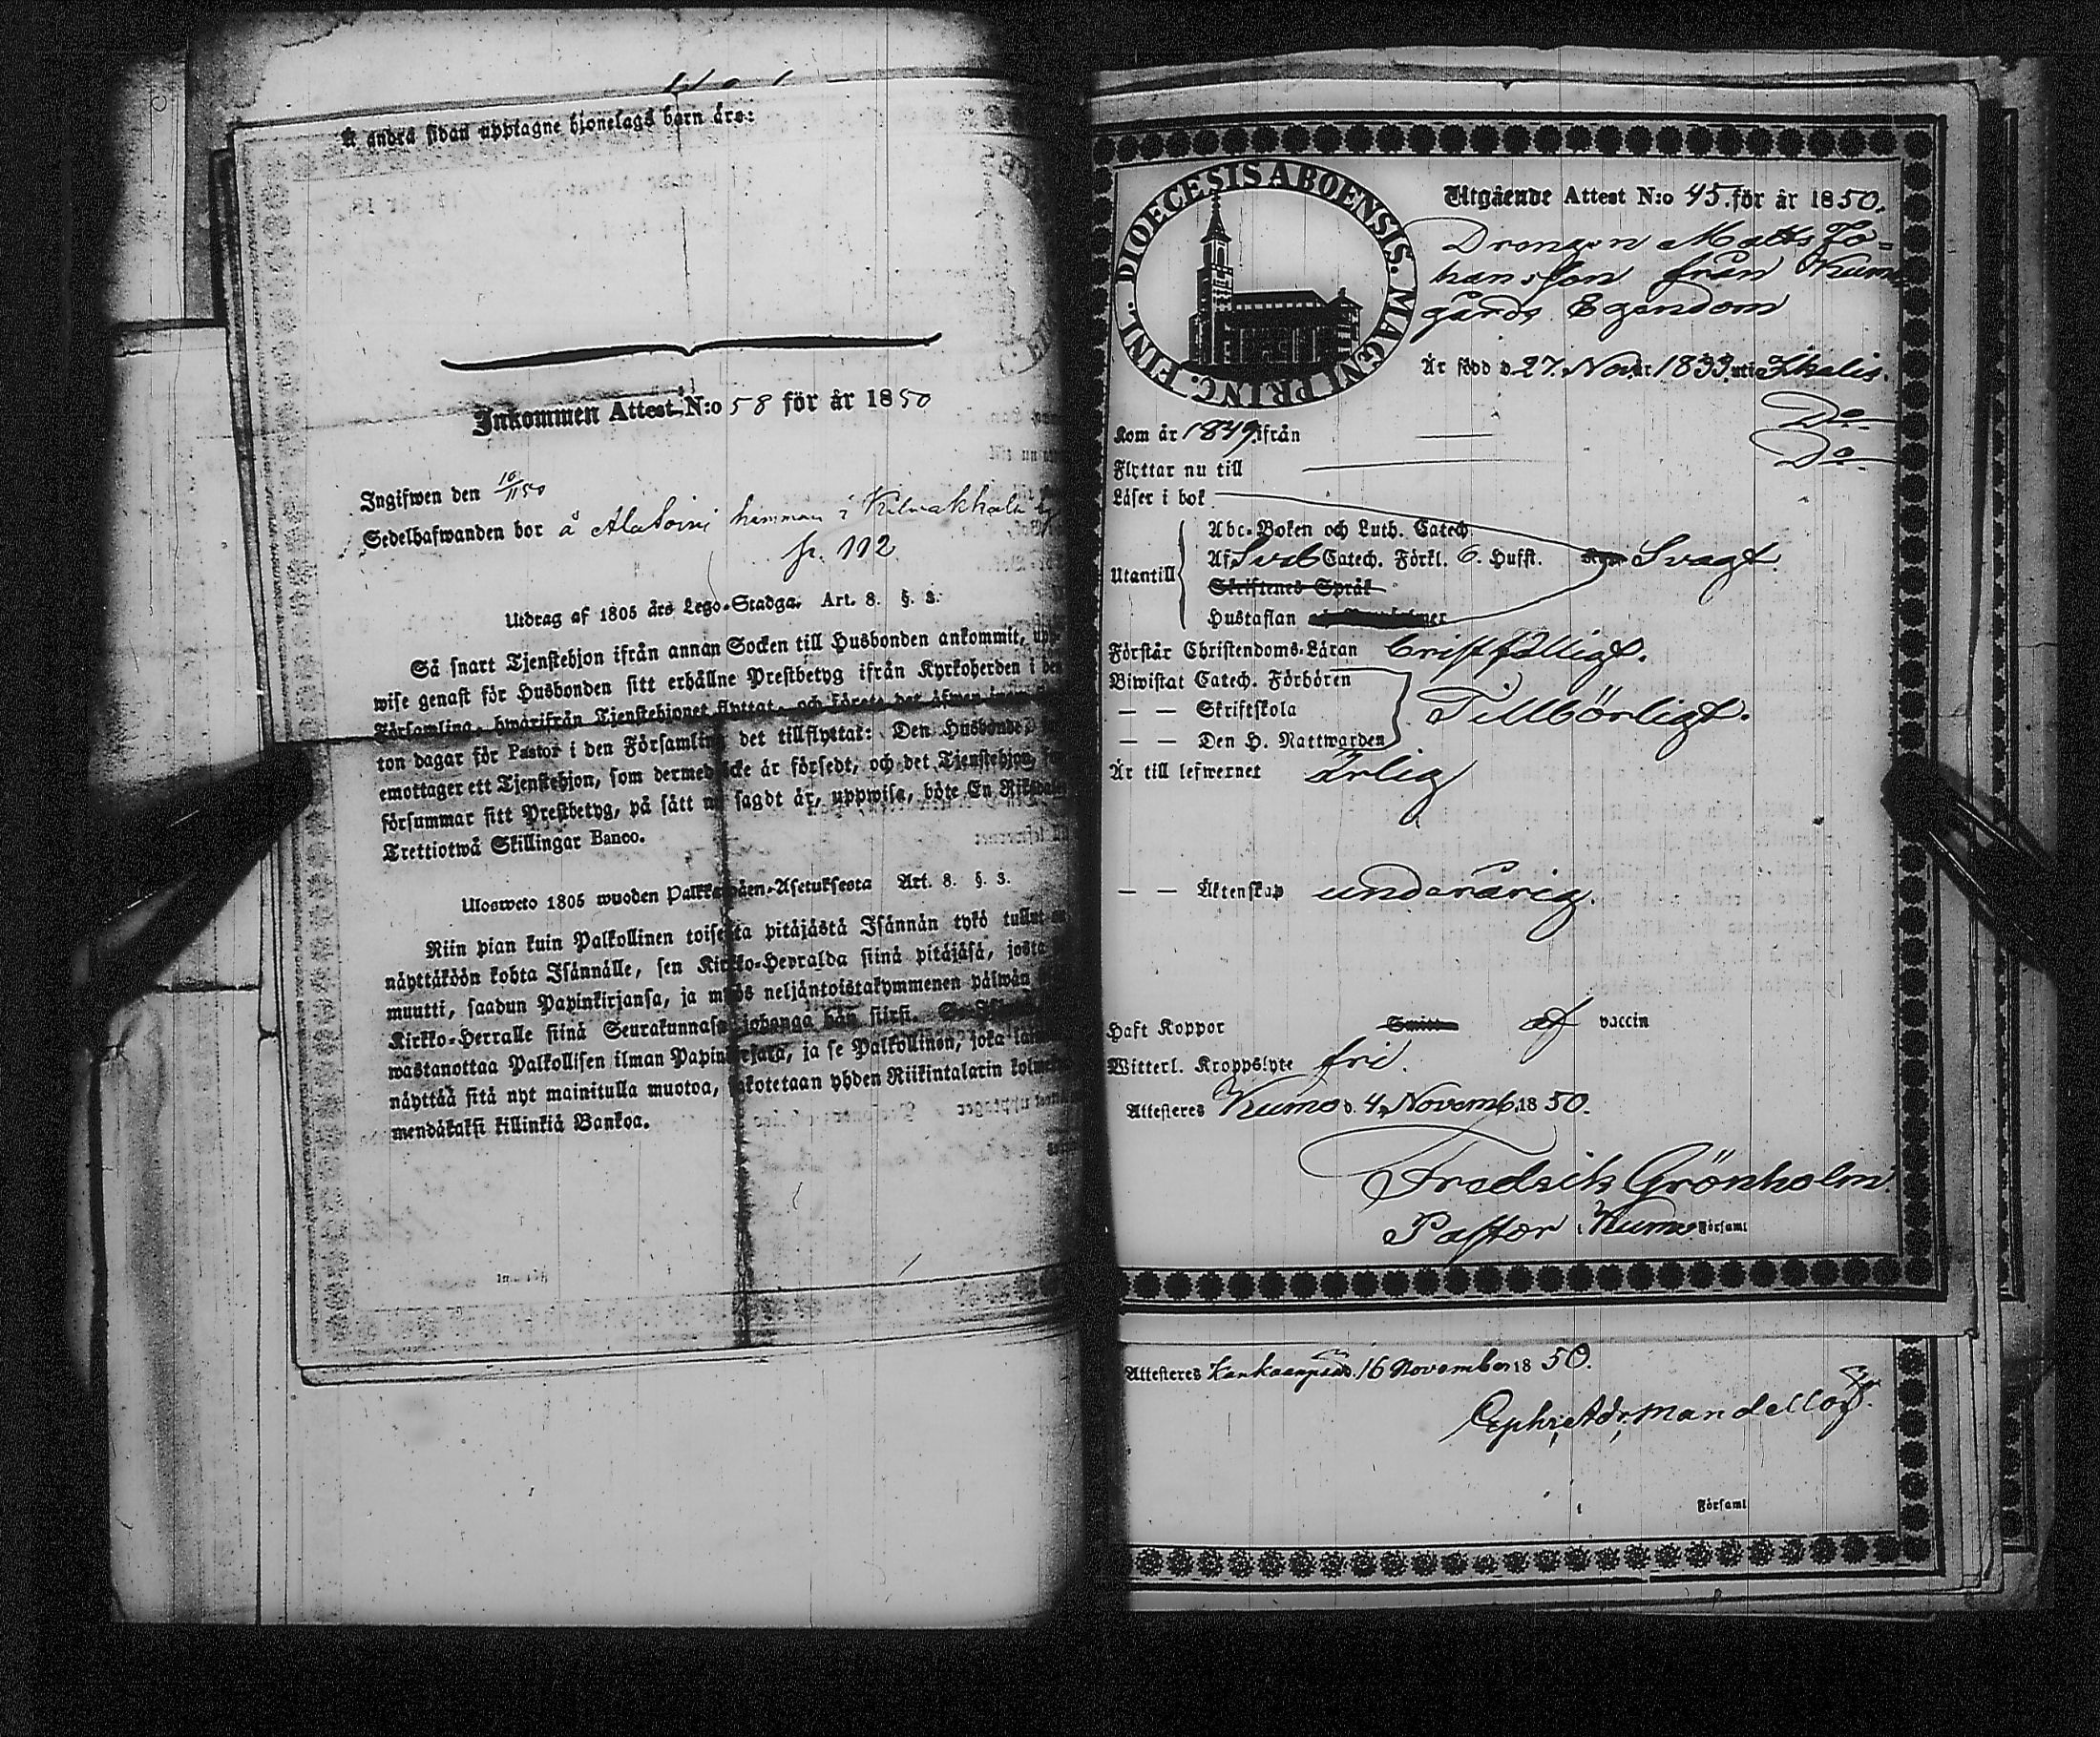 Å andra sidan upptagne hjonelags barn äro:
Inkommen Attest N:o 58 för år 1850
Ingifwen den 10/11 50
Sedelhafwanden bor å Alatoivi hemman i
fr. 112
Utdrag af 1805 års Lego-Stadga. Art. 8. §. 3.
Så snart Tjenstehjon ifrån annan Socken till Husbonden ankommit, upp-
wise genast för Husbonden sitt erhållne Prestbetyg ifrån Kyrkoherden i den
Församling, hwarifrån Tjenstehjonet flyttat, och förete det äfwen inom
ton dagar för Pastor i den Församling det tillflyttat: Den Husbonde,
emottager ett Tjenstehjon, som dermed icke är försedt, och det Tjenstehjon,
försummar sitt Prestbetyg, på sätt nu sagdt är, uppwisa, böte En Riksdaler
Trettiotwå Skillingar Banco.
Ulosweto 1805 wuoden Palkkawäen-Asetuksesta Art. 8. §. 3.
Niin pian kuin Palkollinen toisesta pitäjästä Isännän tykö tullut on
näyttäköön kohta Isännälle, sen Kirkko-Herralda siinä pitäjäsä, josta
muutti, saadun Papinkirjansa, ja myös neljäntoistakymmenen päiwän
Kirkko-Herralle siinä Seurakunnasa johonga hän siirsi.
wastanottaa Palkollisen ilman Papinkirjata, ja se Palkollinen, joka
näyttää sitä nyt mainitulla muotoa, sakotetaan yhden Riikintalarin kolme
mendäkaksi killinkiä Bankoa.
DIOECESIS ABOENSIS. MAGNI PRINC. FINL.
Utgående Attest N:o 45. för år 1850.
Drengen Matts Jo-
hansson från Kumo
gårds Egendom
Är född d. 27. Nov. år 1833 uti Ikalis.
Kom år 1849 ifrån — Do
Flyttar nu till — Do
Läser i bok
Abc-Boken och Luth. Catech
Utantill Af Sveb Catech. Förkl. 6. Hufst. Svagt
Skriftenes Språk
Hustaflan
Förstår Christendoms-Läran bristfälligt.
Biwistat Catech. Förhören
— — Skriftskola Tillbörligt.
— — Den H. Nattwarden
Är till lefwernet ärlig
— — Äktenskap underårig.
Haft Koppor af vaccin
Witterl. Kroppslyte fri.
Attesteres Kumo d. 4. Novemb. 1850.
Fredrik Grönholm.
Pastor i Kumo Församl
Attesteres Kankaanpää d. 16 November 1850.
Ephr. Adr. Mandellöf.
i Församl